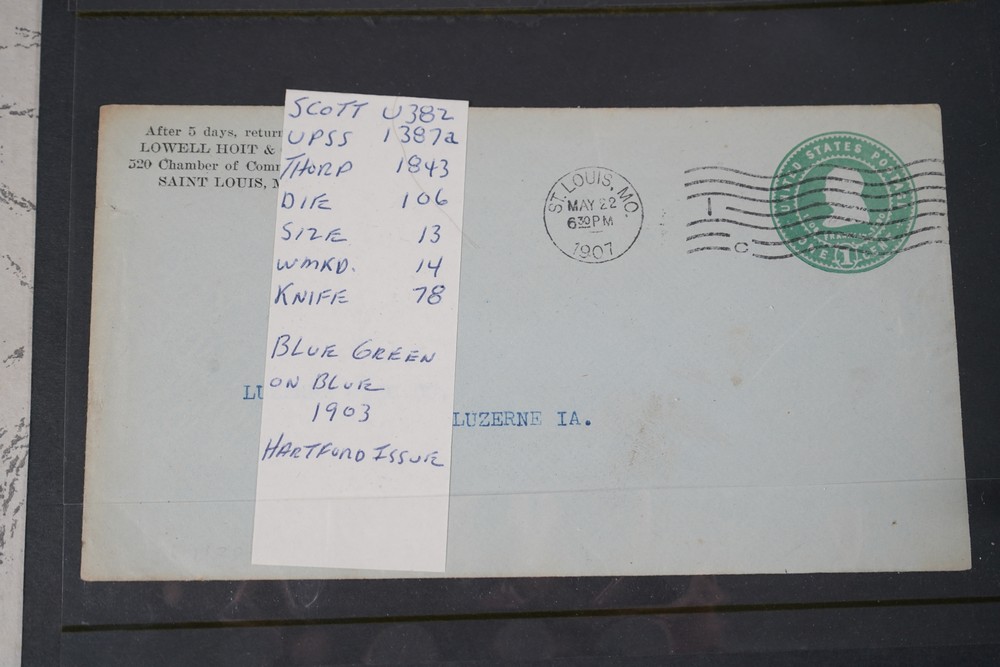 After 5 days, return
LOWELL HOIT &
520 Chamber of Comm
SAINT LOUIS, M
SCOTT U382
UPSS 1387a
THORP 1843
DIE 106
SIZE 13
WMKD. 14
KNIFE 78
BLUE GREEN
ON BLUE
1903
HARTFORD ISSUE
ST. LOUIS, MO.
MAY 22
630PM
1907
1
C
UNITED STATES POSTAGE
ONE 1 CENT
LU
LUZERNE IA.